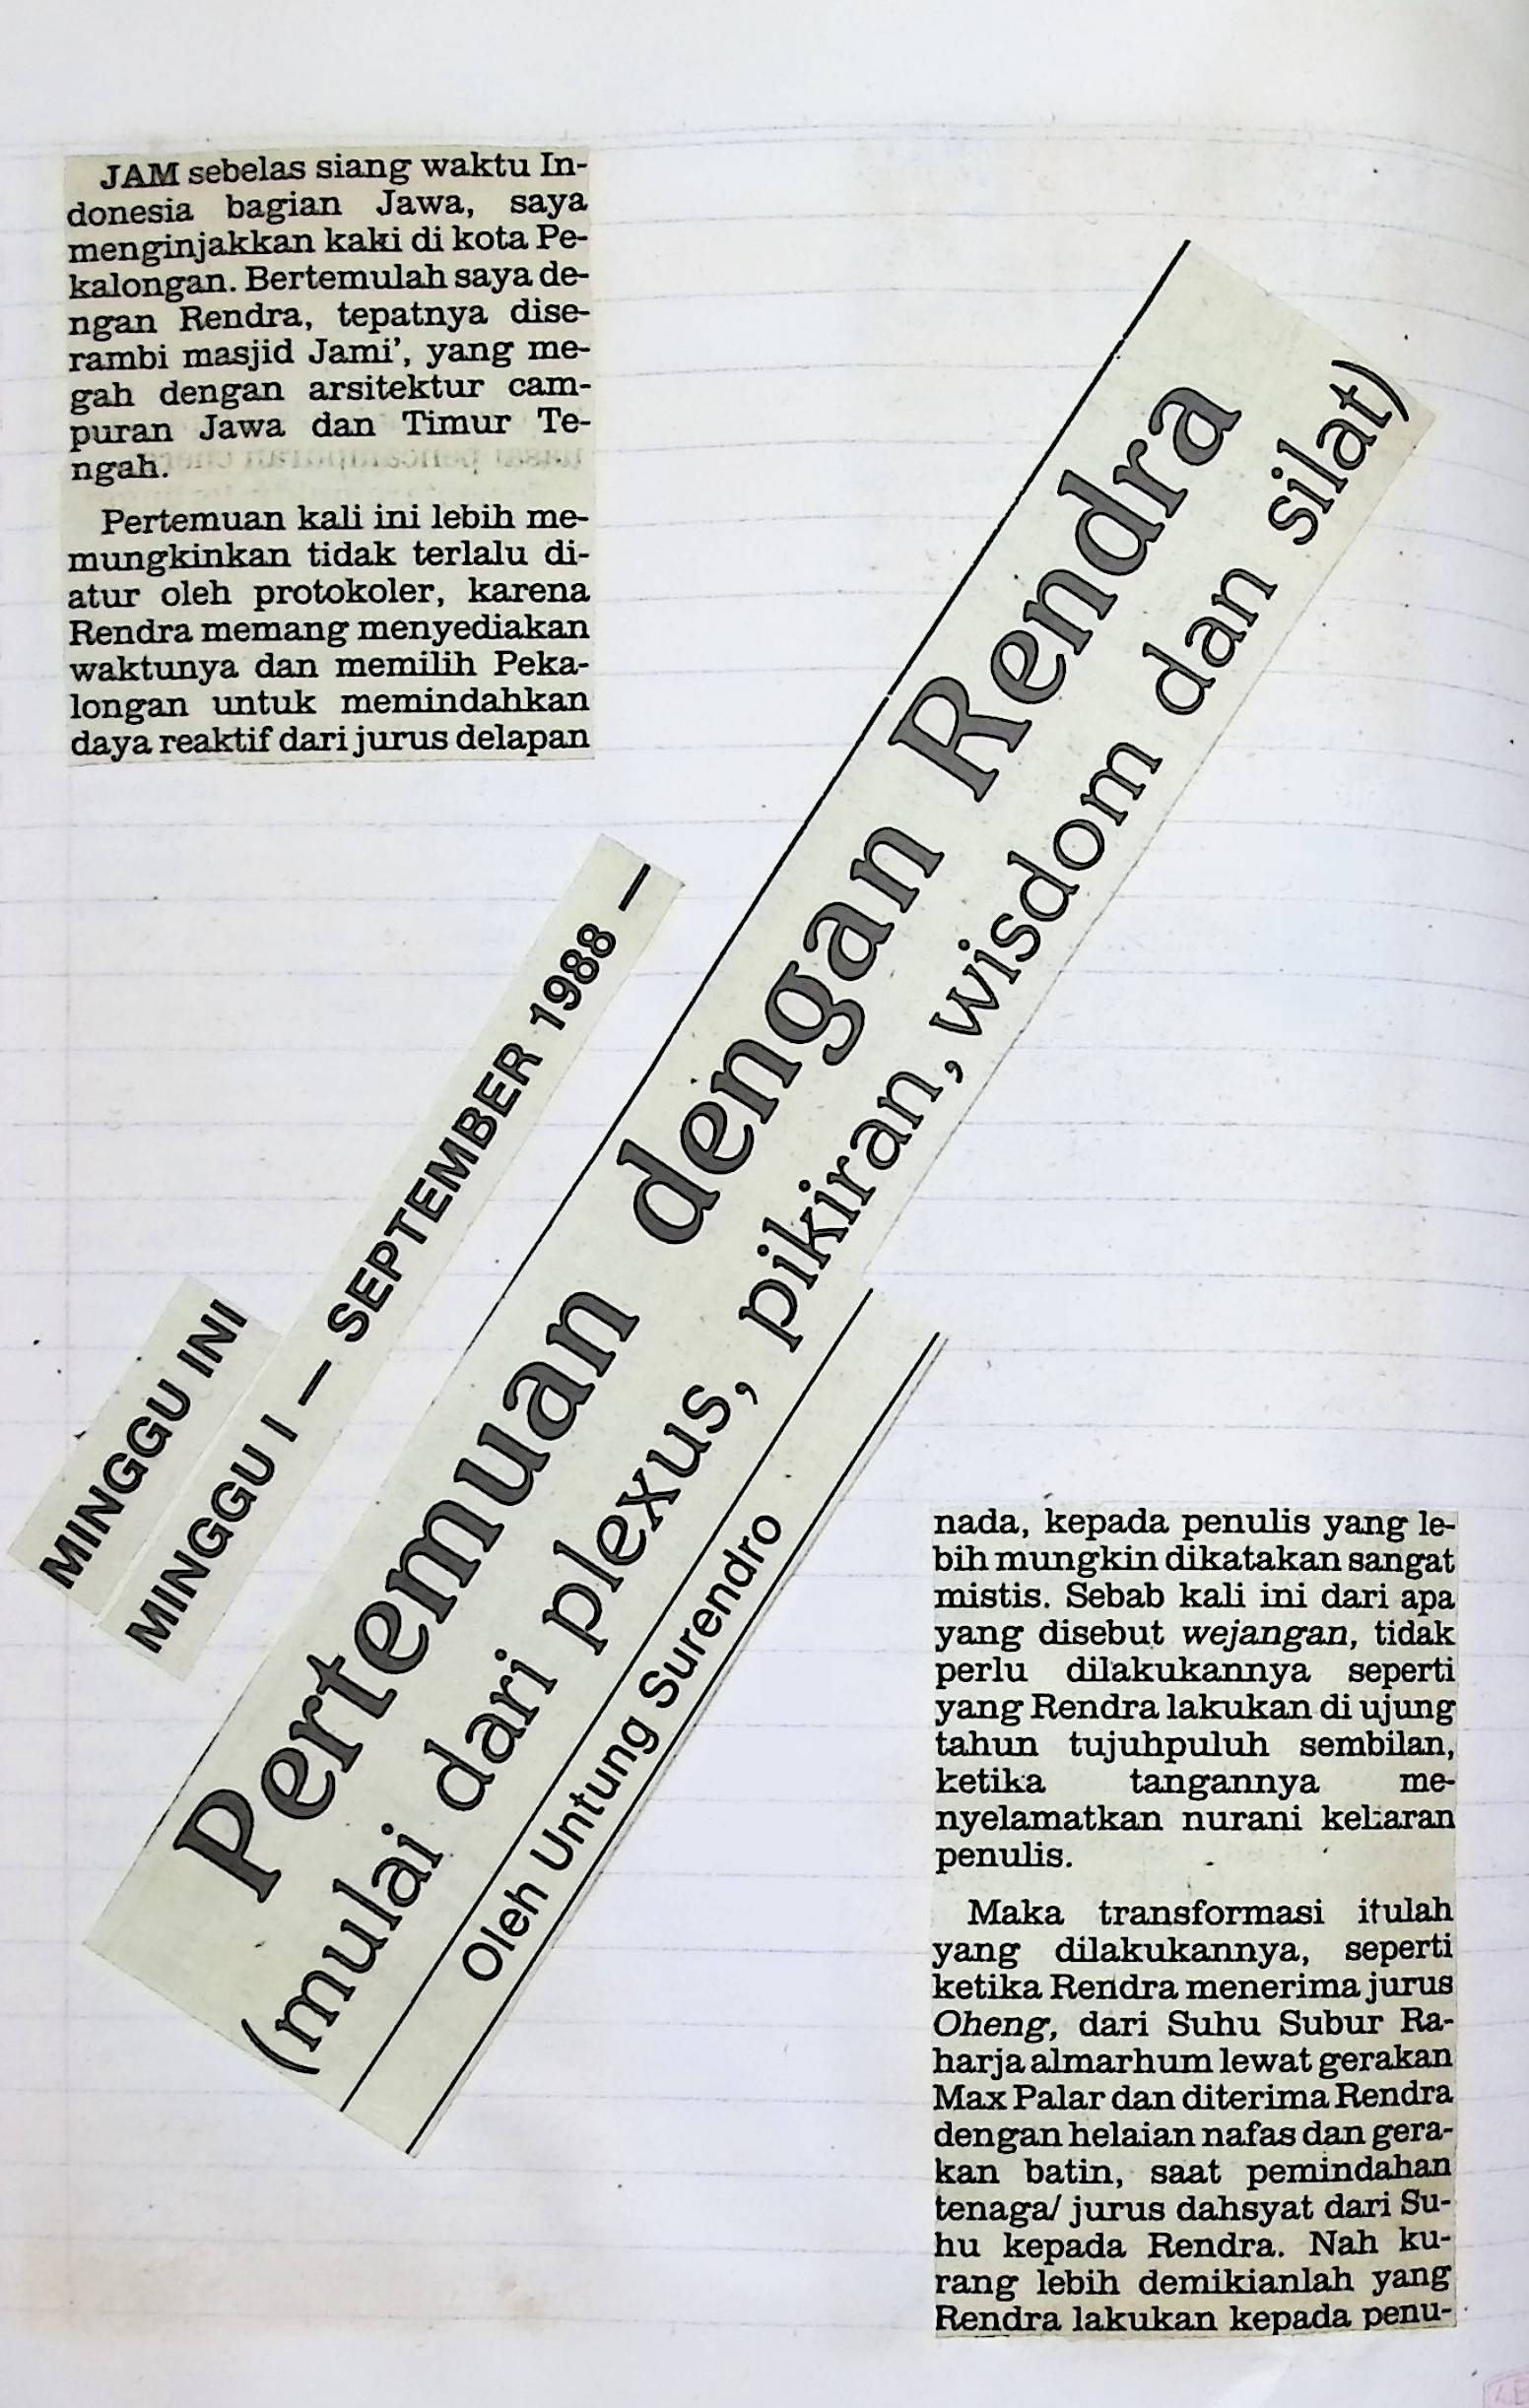 MINGGU INI
MINGGU I — SEPTEMBER 1988 —
Pertemuan dengan Rendra
(mulai dari plexus, pikiran, wisdom dan silat)
Oleh Untung Surendro
JAM sebelas siang waktu In-
donesia bagian Jawa, saya
menginjakkan kaki di kota Pe-
kalongan. Bertemulah saya de-
ngan Rendra, tepatnya dise-
rambi masjid Jami’, yang me-
gah dengan arsitektur cam-
puran Jawa dan Timur Te-
ngah.
Pertemuan kali ini lebih me-
mungkinkan tidak terlalu di-
atur oleh protokoler, karena
Rendra memang menyediakan
waktunya dan memilih Peka-
longan untuk memindahkan
daya reaktif dari jurus delapan
nada, kepada penulis yang le-
bih mungkin dikatakan sangat
mistis. Sebab kali ini dari apa
yang disebut wejangan, tidak
perlu dilakukannya seperti
yang Rendra lakukan di ujung
tahun tujuhpuluh sembilan,
ketika tangannya me-
nyelamatkan nurani
penulis.
Maka transformasi itulah
yang dilakukannya, seperti
ketika Rendra menerima jurus
Oheng, dari Suhu Subur Ra-
harja almarhum lewat gerakan
Max Palar dan diterima Rendra
dengan helaian nafas dan gera-
kan batin, saat pemindahan
tenaga/ jurus dahsyat dari Su-
hu kepada Rendra. Nah ku-
rang lebih demikianlah yang
Rendra lakukan kepada penu-